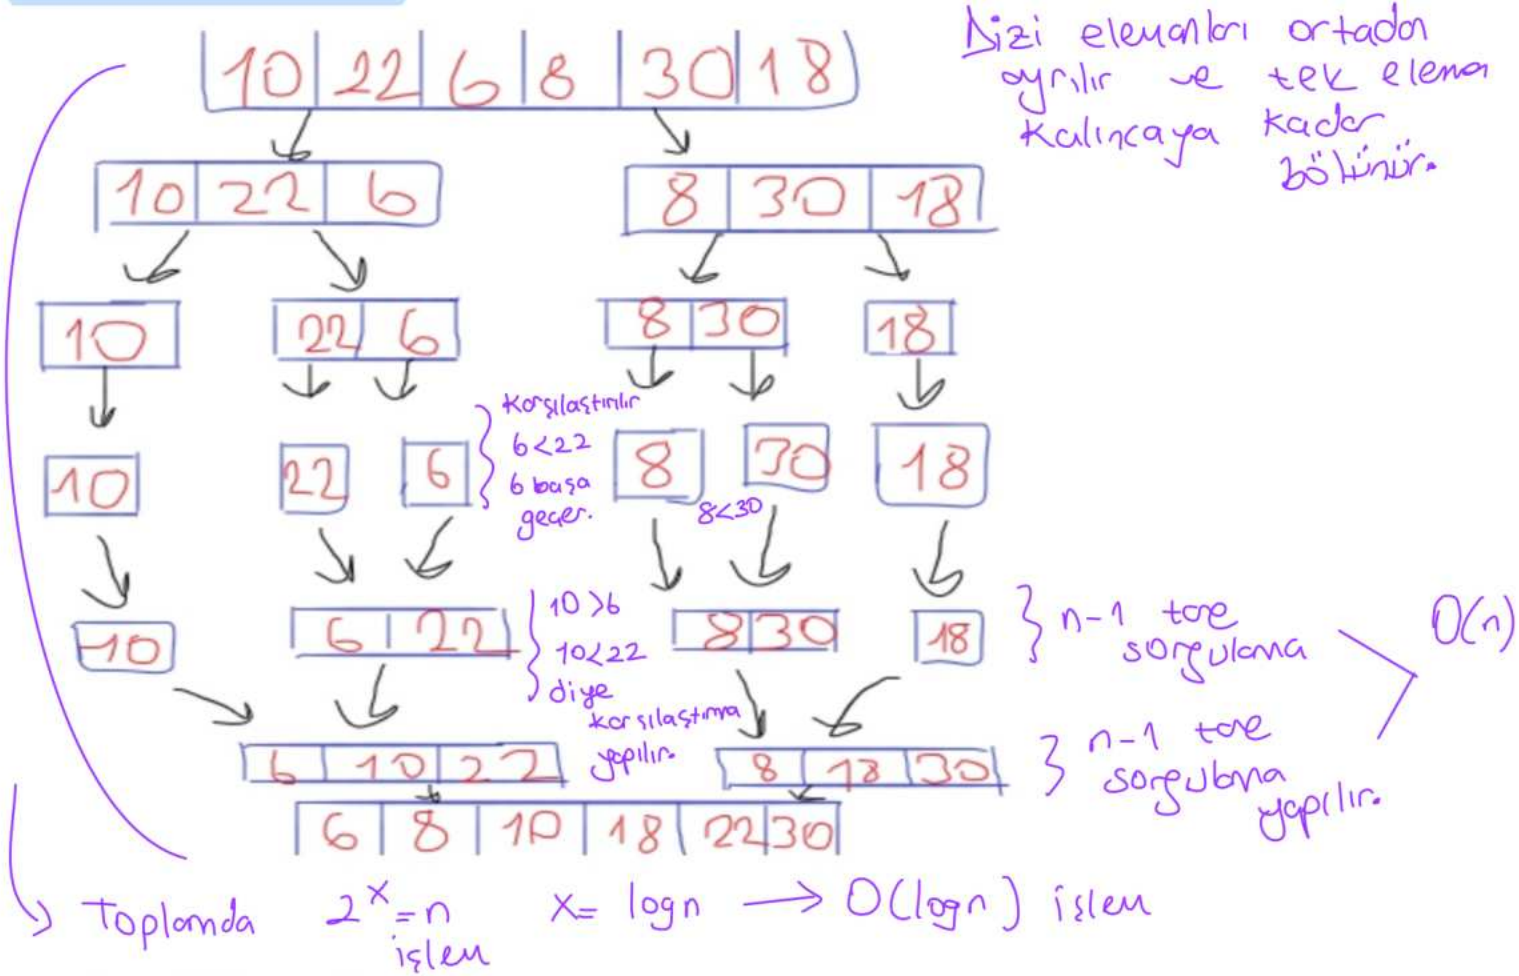 10 22 6 8 30 18
Dizi elemanları ortadan
ayrılır ve tek eleman
kalıncaya kadar
bölünür.
10 22 6
8 30 18
10
22 6
8 30
18
10
22
6
Karşılaştırılır
6<22
6 başa
geçer.
8
30
8<30
18
10
6 22
10>6
10<22
diye
karşılaştırma
yapılır.
8 30
18
n-1 tane
sorgulama
O(n)
6 10 22
8 18 30
n-1 tane
sorgulama
yapılır.
6 8 10 18 22 30
Toplamda 2^x=n
işlem
x= logn → O(logn) işlem